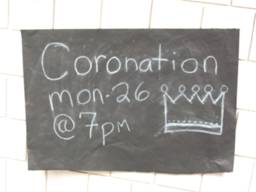 Coronation
mon. 26
@ 7pm